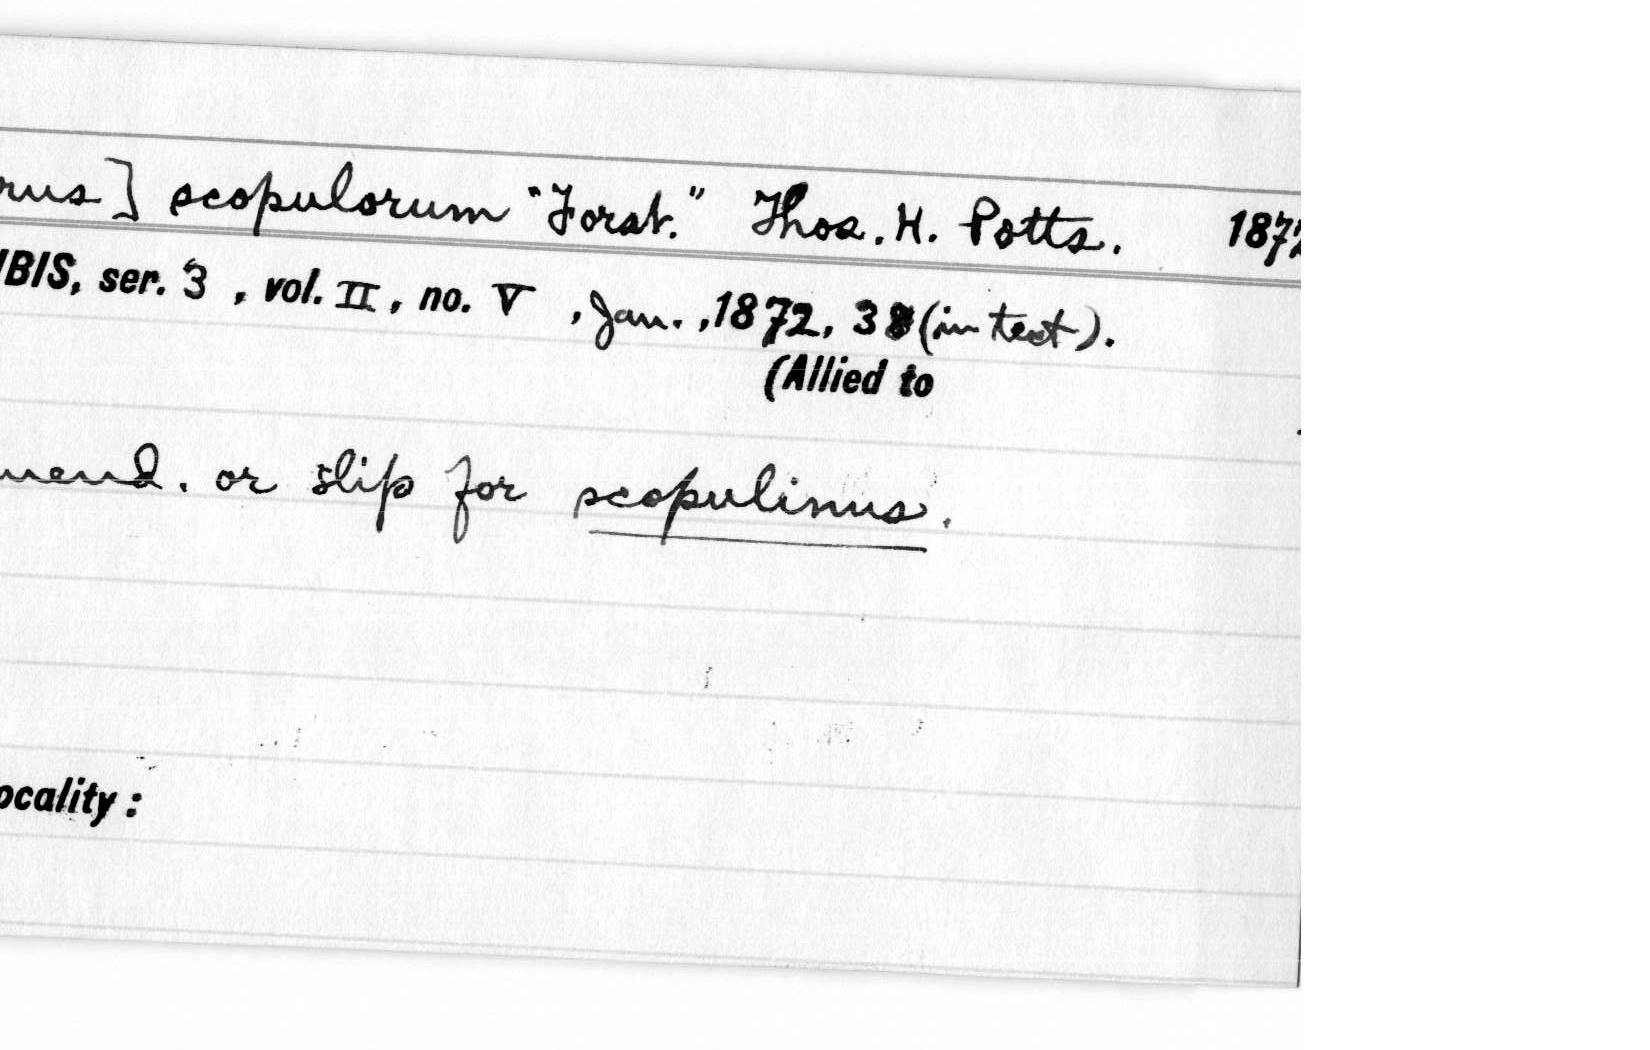 rus] scopulorum "Forst." Thos. H. Potts. 1872
IBIS, ser. 3, vol. II, no. V, Jan., 1872, 38 (in text).
(Allied to
mend. or slip for scopulinus.
ocality: